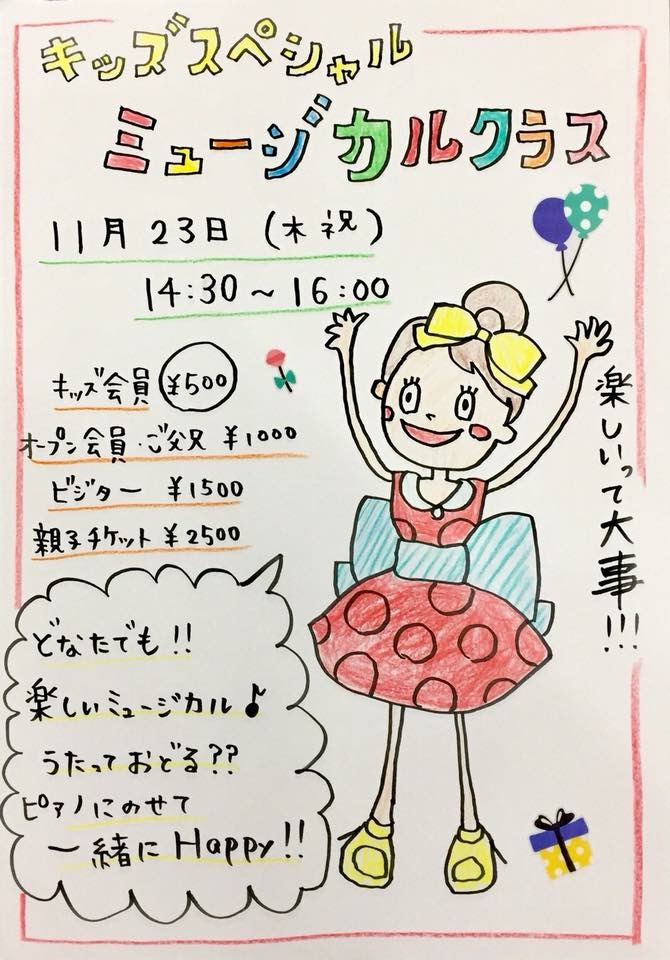 キッズスペシャル
ミュージカルクラス
11月 23日 (木祝)
14:30 ~ 16:00
キッズ会員 ¥500
オープン会員・ご父兄 ¥1000
ビジター ¥1500
親子チケット ¥2500
楽しいって大事!!!
どなたでも!!
楽しいミュージカル♪
うたっておどる??
ピアノにのせて
一緒に Happy!!